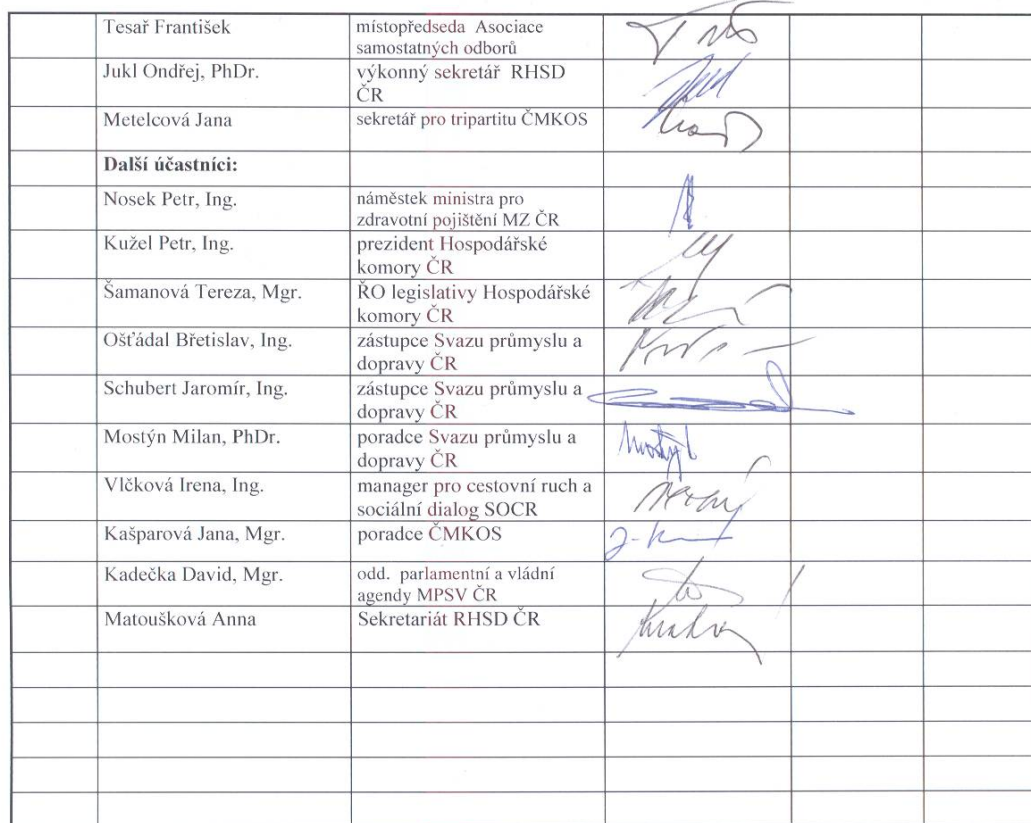 Tesař František
místopředseda Asociace
samostatných odborů
Jukl Ondřej, PhDr.
výkonný sekretář RHSD
ČR
Metelcová Jana
sekretář pro tripartitu ČMKOS
Další účastníci:
Nosek Petr, Ing.
náměstek ministra pro
zdravotní pojištění MZ ČR
Kužel Petr, Ing.
prezident Hospodářské
komory ČR
Šamanová Tereza, Mgr.
ŘO legislativy Hospodářské
komory ČR
Ošťádal Břetislav, Ing.
zástupce Svazu průmyslu a
dopravy ČR
Schubert Jaromír, Ing.
zástupce Svazu průmyslu a
dopravy ČR
Mostýn Milan, PhDr.
poradce Svazu průmyslu a
dopravy ČR
Vlčková Irena, Ing.
manager pro cestovní ruch a
sociální dialog SOCR
Kašparová Jana, Mgr.
poradce ČMKOS
Kadečka David, Mgr.
odd. parlamentní a vládní
agendy MPSV ČR
Matoušková Anna
Sekretariát RHSD ČR